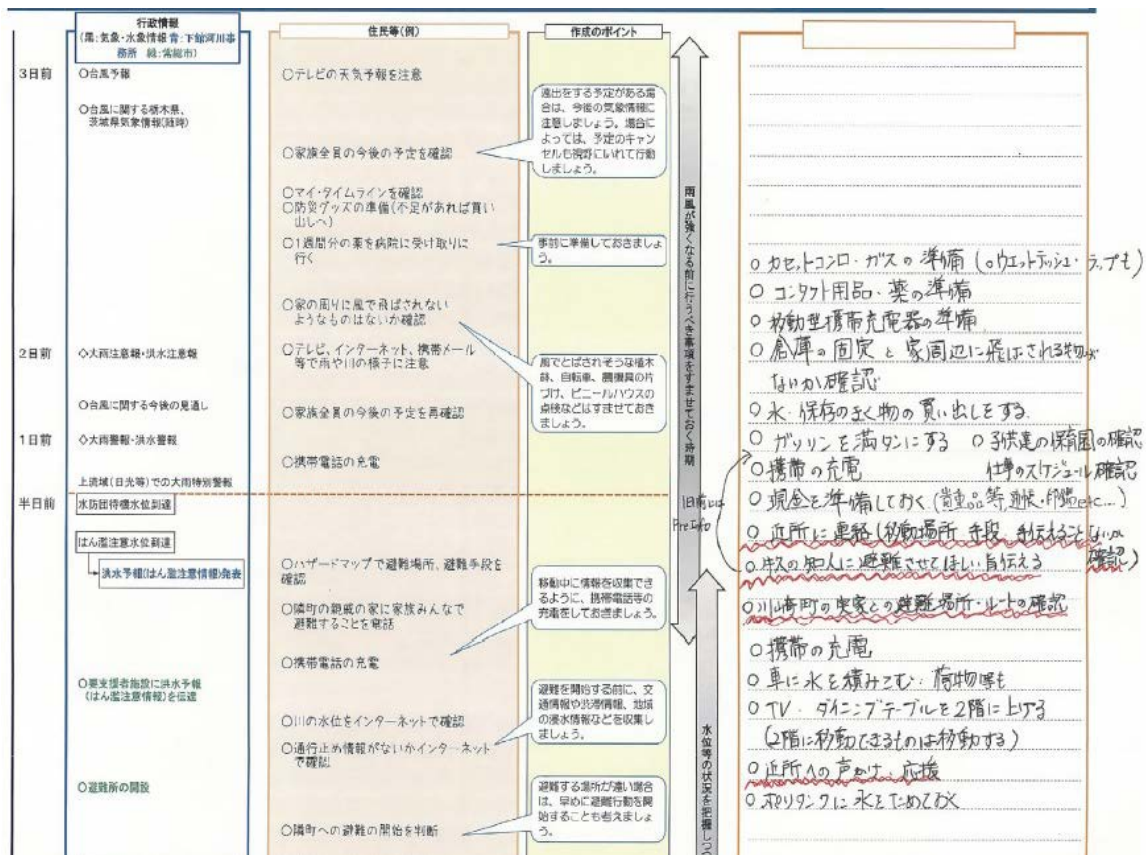 行政情報
(黒:気象・水象情報 青:下館河川事
務所 緑:常総市)
3日前
○台風予報
○台風に関する栃木県、
茨城県気象情報(随時)
2日前
◇大雨注意報・洪水注意報
○台風に関する今後の見通し
1日前
◇大雨警報・洪水警報
上流域(日光等)での大雨特別警報
半日前
水防団待機水位到達
はん濫注意水位到達
洪水予報(はん濫注意情報)発表
○要支援者施設に洪水予報
(はん濫注意情報)を伝達
○避難所の開設
住民等(例)
○テレビの天気予報を注意
○家族全員の今後の予定を確認
○マイ・タイムラインを確認
○防災グッズの準備(不足があれば買い
出しへ)
○1週間分の薬を病院に受け取りに
行く
○家の周りに風で飛ばされない
ようなものはないか確認
○テレビ、インターネット、携帯メール
等で雨や川の様子に注意
○家族全員の今後の予定を再確認
○携帯電話の充電
○ハザードマップで避難場所、避難手段を
確認
○隣町の親戚の家に家族みんなで
避難することを電話
○携帯電話の充電
○川の水位をインターネットで確認
○通行止め情報がないかインターネット
で確認
○隣町への避難の開始を判断
作成のポイント
遠出をする予定がある場
合は、今後の気象情報に
注意しましょう。場合に
よっては、予定のキャン
セルも視野にいれて行動
しましょう。
事前に準備しておきましょ
う。
風でとばされそうな植木
鉢、自転車、農機具の片
づけ、ビニールハウスの
点検などはすませておき
ましょう。
移動中に情報を収集でき
るように、携帯電話等の
充電をしておきましょう。
避難を開始する前に、交
通情報や渋滞情報、地域
の浸水情報などを収集し
ましょう。
避難する場所が遠い場合
は、早めに避難行動を開
始することも考えましょ
う。
雨風が強くなる前に行うべき事項をすませておく時期
水位等の状況を把握しつつ
1日前には
Pre Info
○カセットコンロ・ガスの準備(○ウエットテッシュ・ラップも)
○コンタクト用品・薬の準備
○移動型携帯充電器の準備
○倉庫の固定と家周辺に飛ばされる物が
ないか確認
○水・保存のきく物の買い出しをする
○ガソリンを満タンにする ○子供達の保育園の確認
○携帯の充電 仕事のスケジュール確認
○現金を準備しておく(貴重品等、通帳・印鑑etc...)
○近所に連絡(移動場所 手段、手伝えることないか
確認)
の知人に避難させてほしい旨伝える
の実家との避難場所・ルートの確認
○携帯の充電
○車に水を積みこむ・荷物等も
○TV・ダイニングテーブルを2階に上げる
(2階に移動できるものは移動する)
○近所への声かけ、応援
○ポリタンクに水をためておく